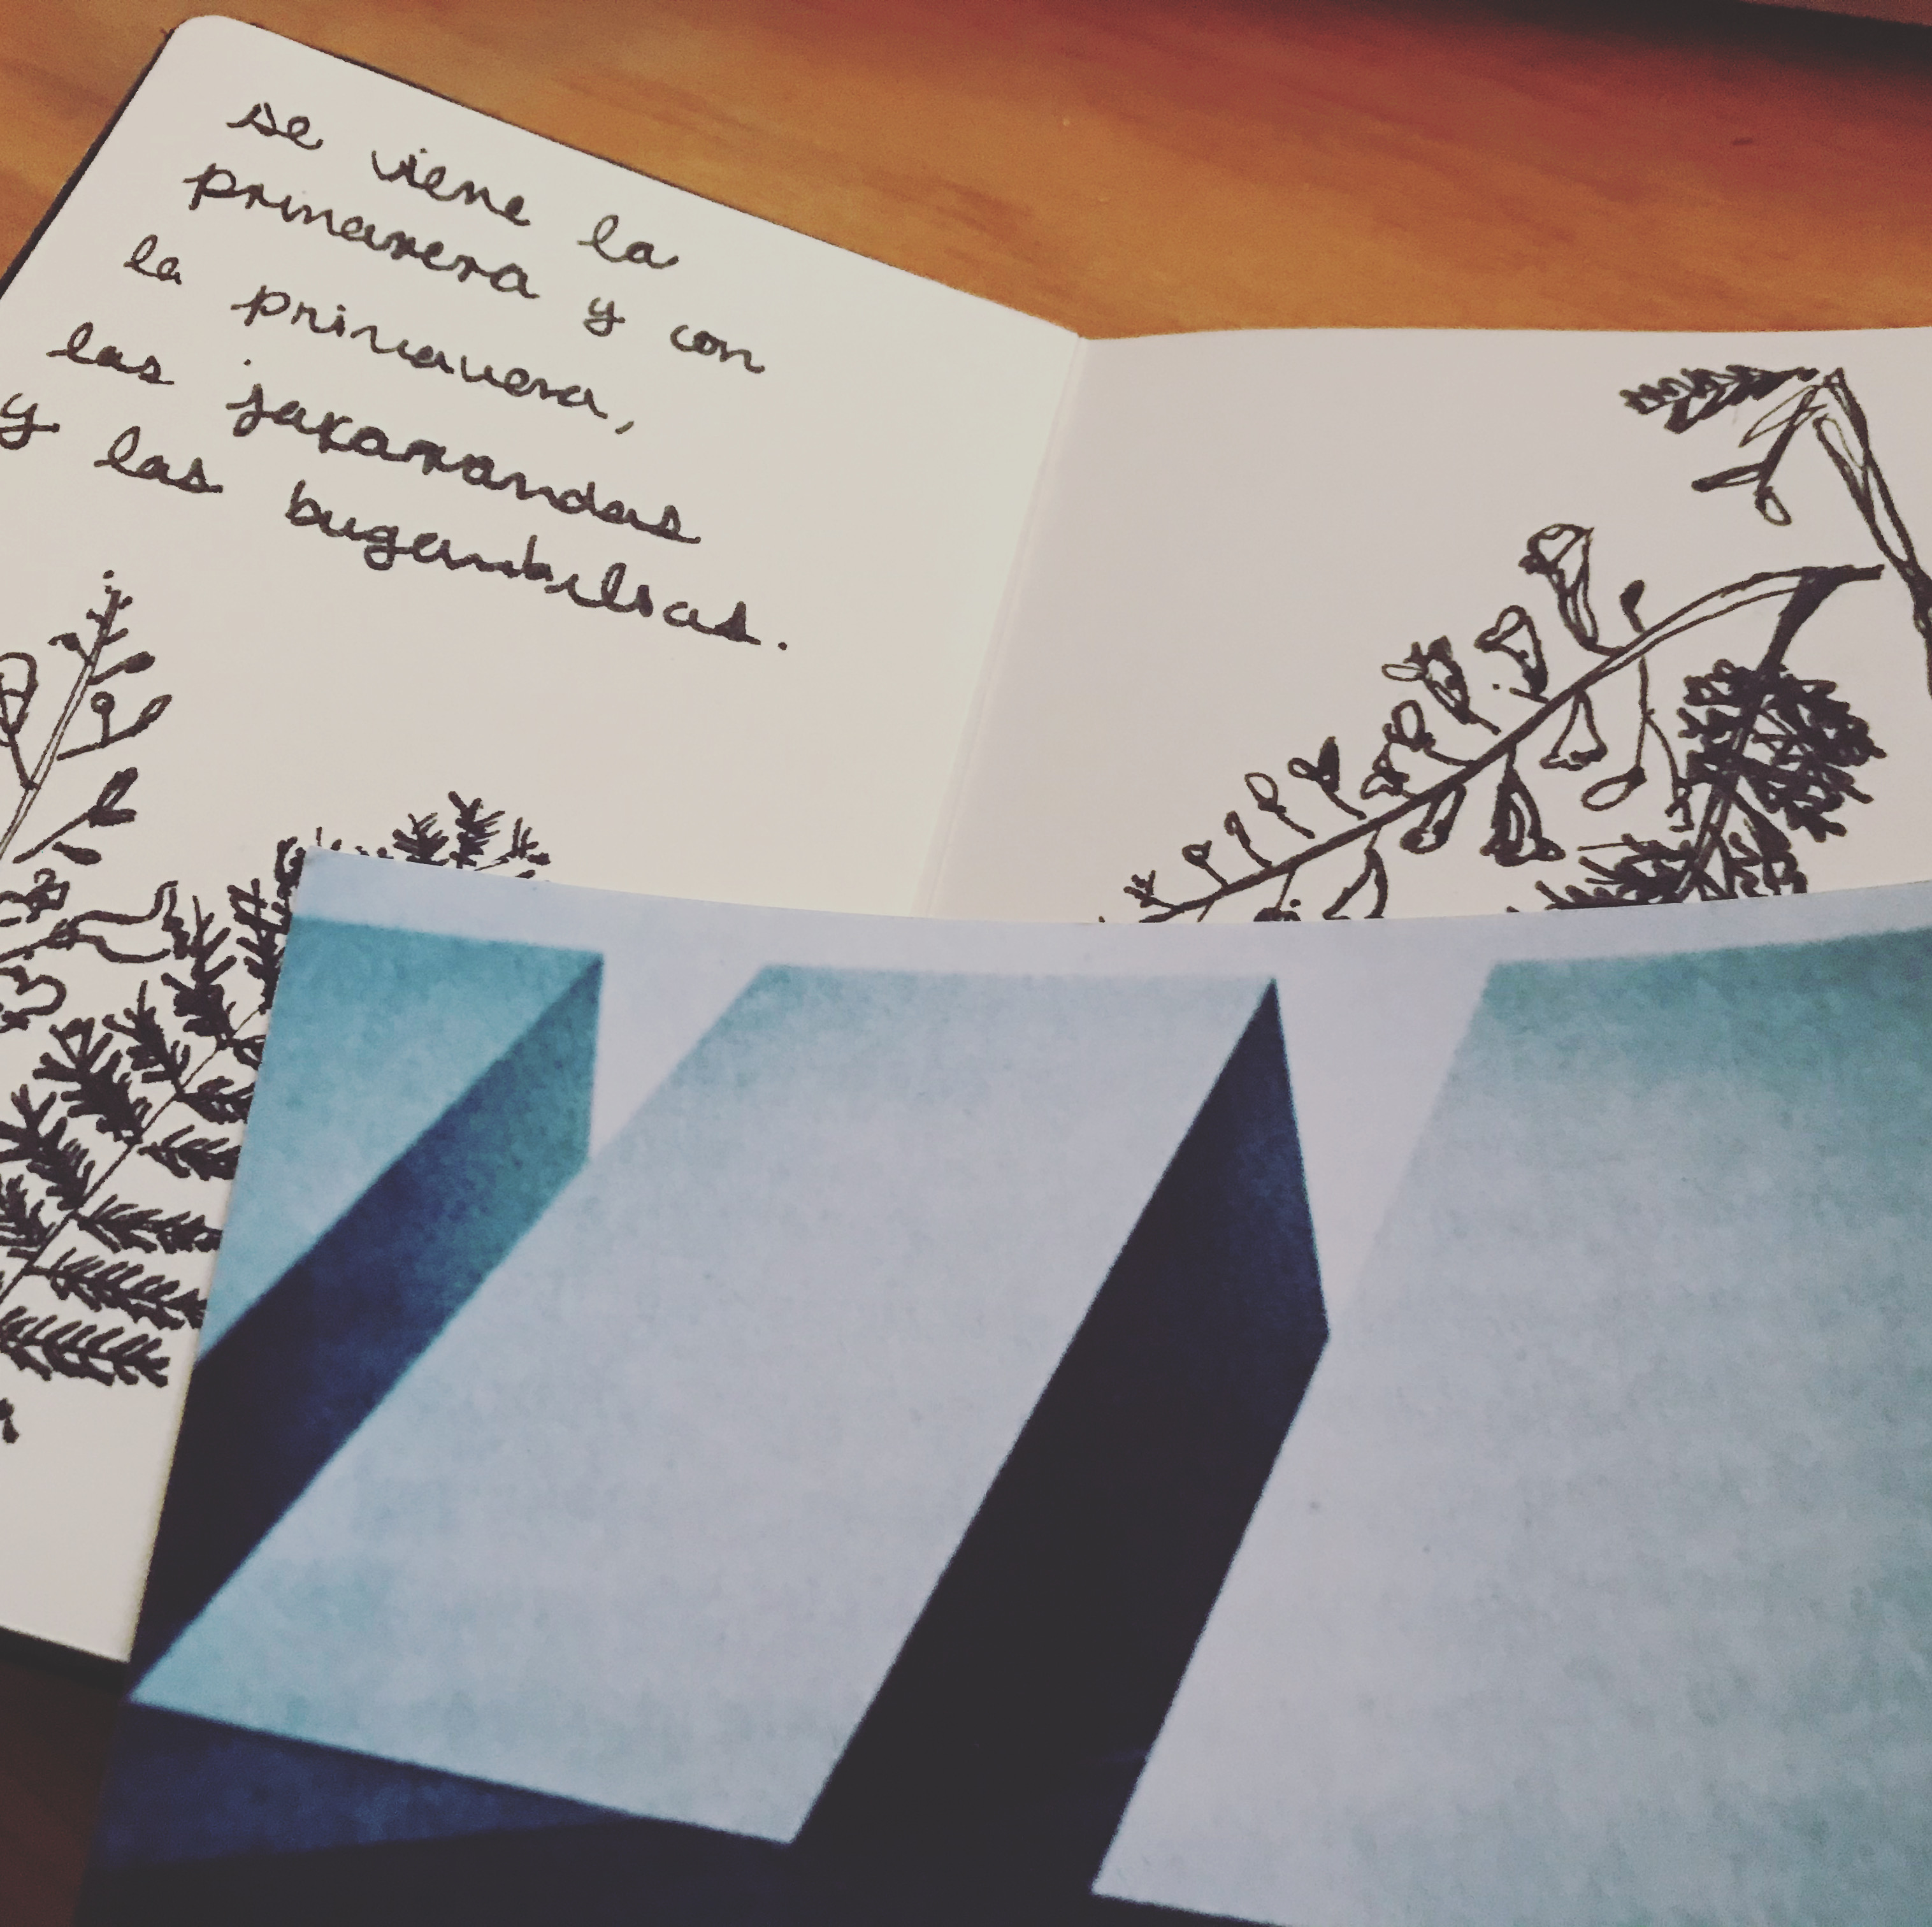 se viene la
primavera y con
la primavera,
las jakarandas
y las bugambilias.